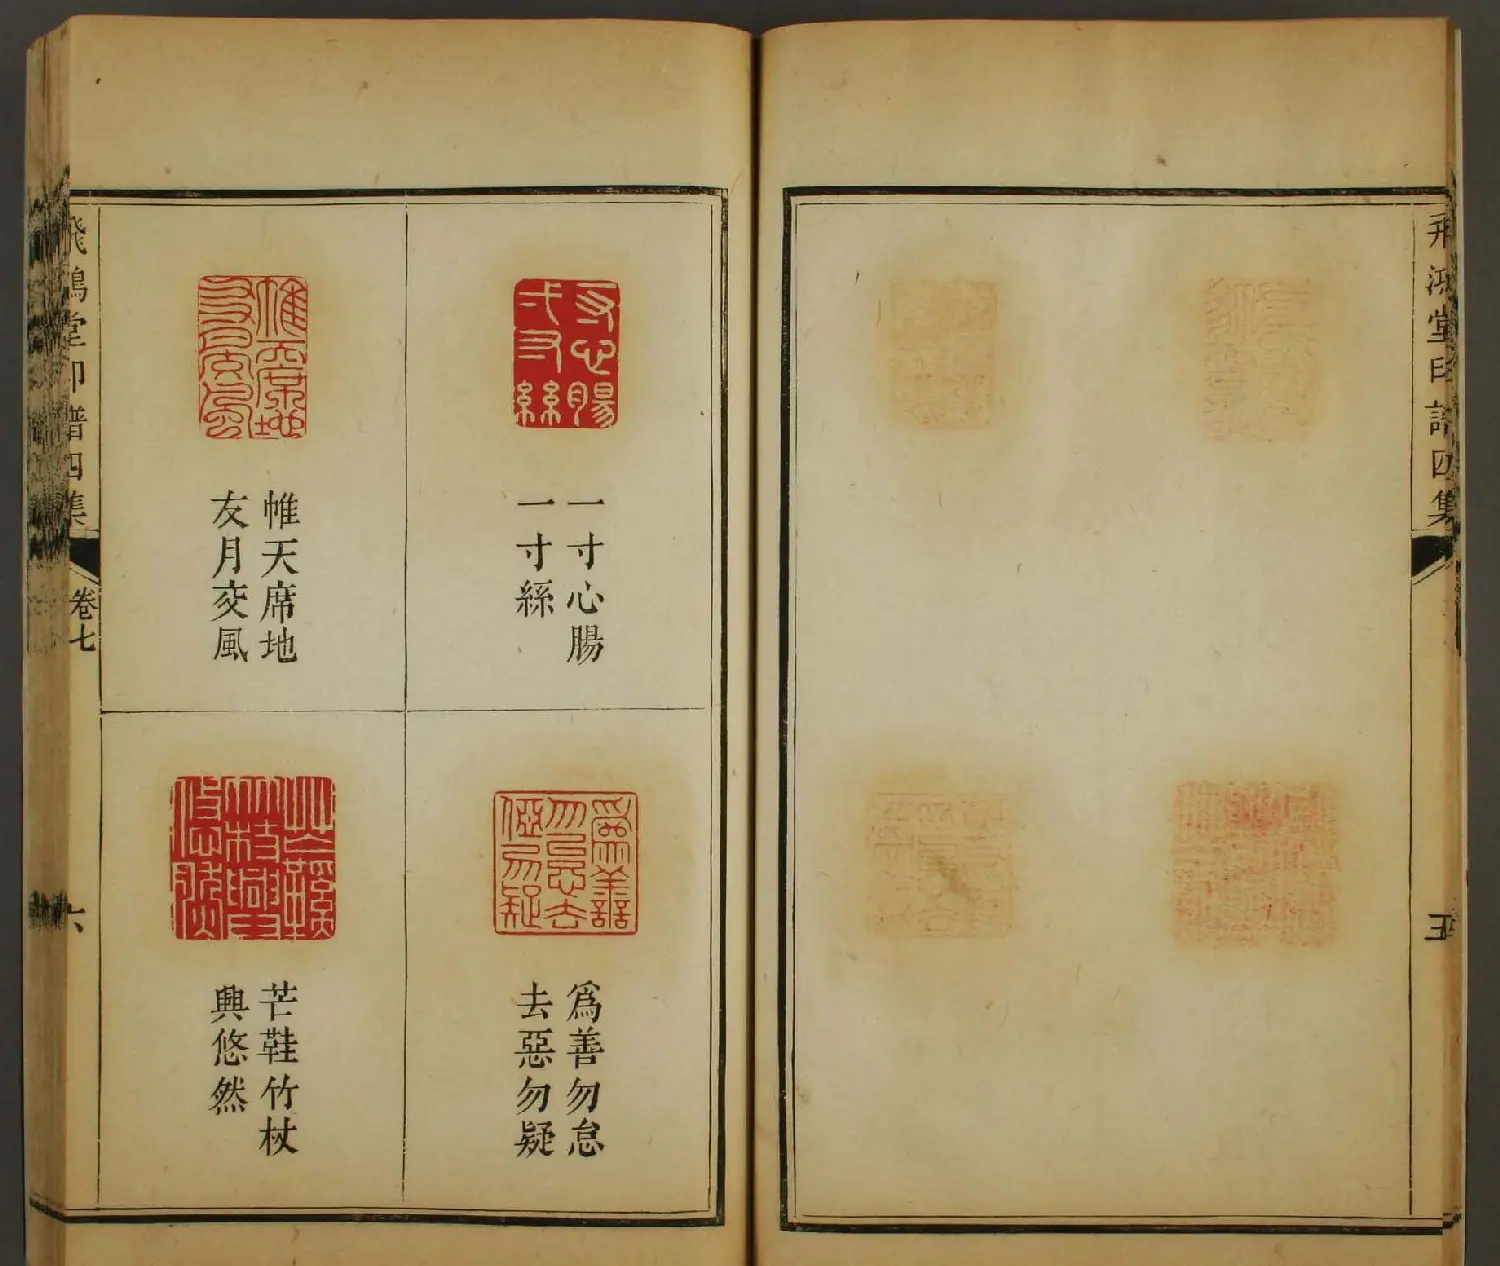 飛鴻堂印譜四集
一寸心腸
一寸絲
帷天席地
友月交風
為善勿怠
去惡勿疑
芒鞋竹杖
興悠然
飛鴻堂印譜四集
卷七
六